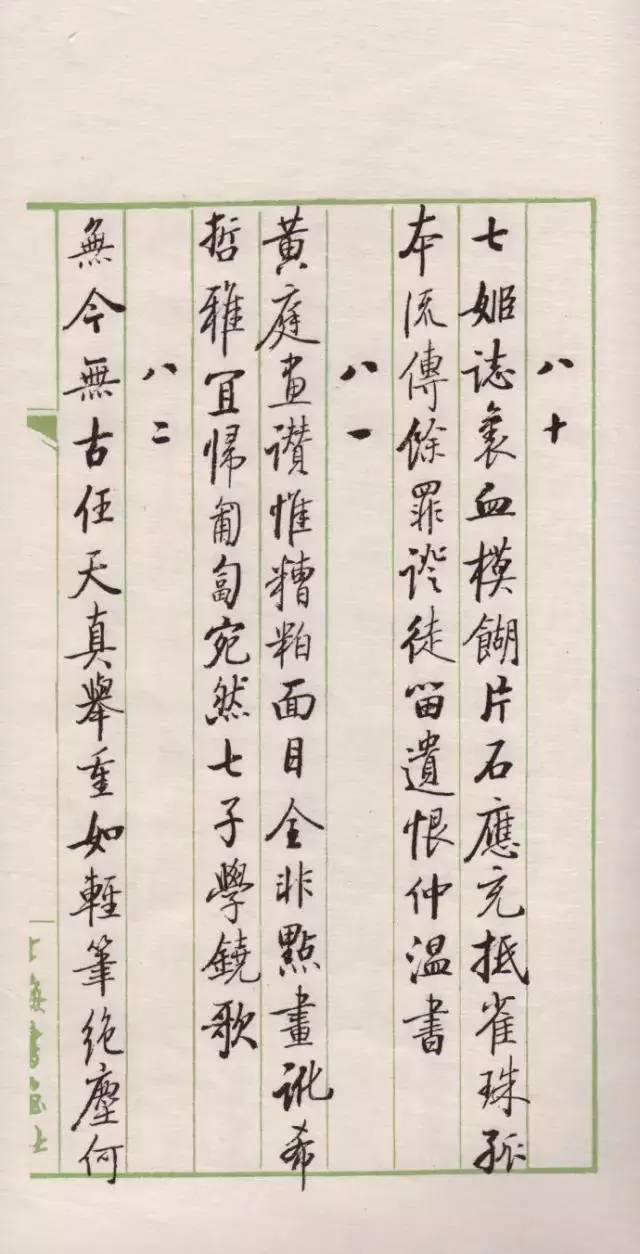 八十
七姬誌裏血模餬片石應充抵雀珠孤
本流傳餘罪證徒留遺恨仲温書
八一
黃庭畫讚惟糟粕面目全非點畫訛希
哲雅宜歸匍匐宛然七子學鐃歌
八二
無今無古任天真舉重如輕筆絶塵何
上海書畫社